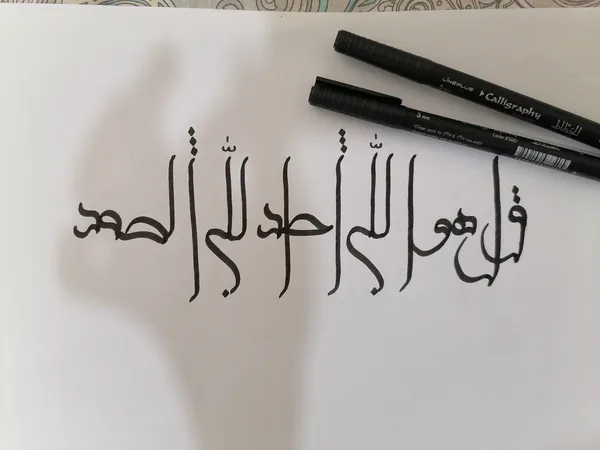 LINEPLUS Calligraphy
3 mm
قل هو الله احد الله الصمد